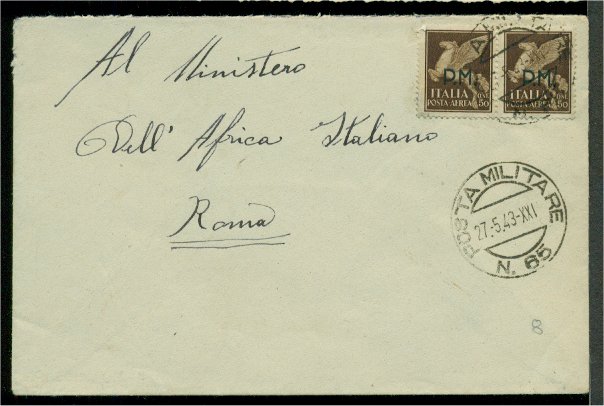 P.M.
ITALIA
POSTA AEREA
50
P.M.
ITALIA
POSTA AEREA
50
Al Ministero
Dell' Africa Italiano
Roma
POSTA MILITARE
27.5.43-XXI
N. 65
8